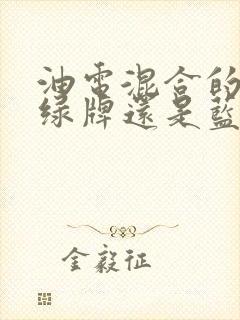 油電混合的
綠牌還是藍
金毅征